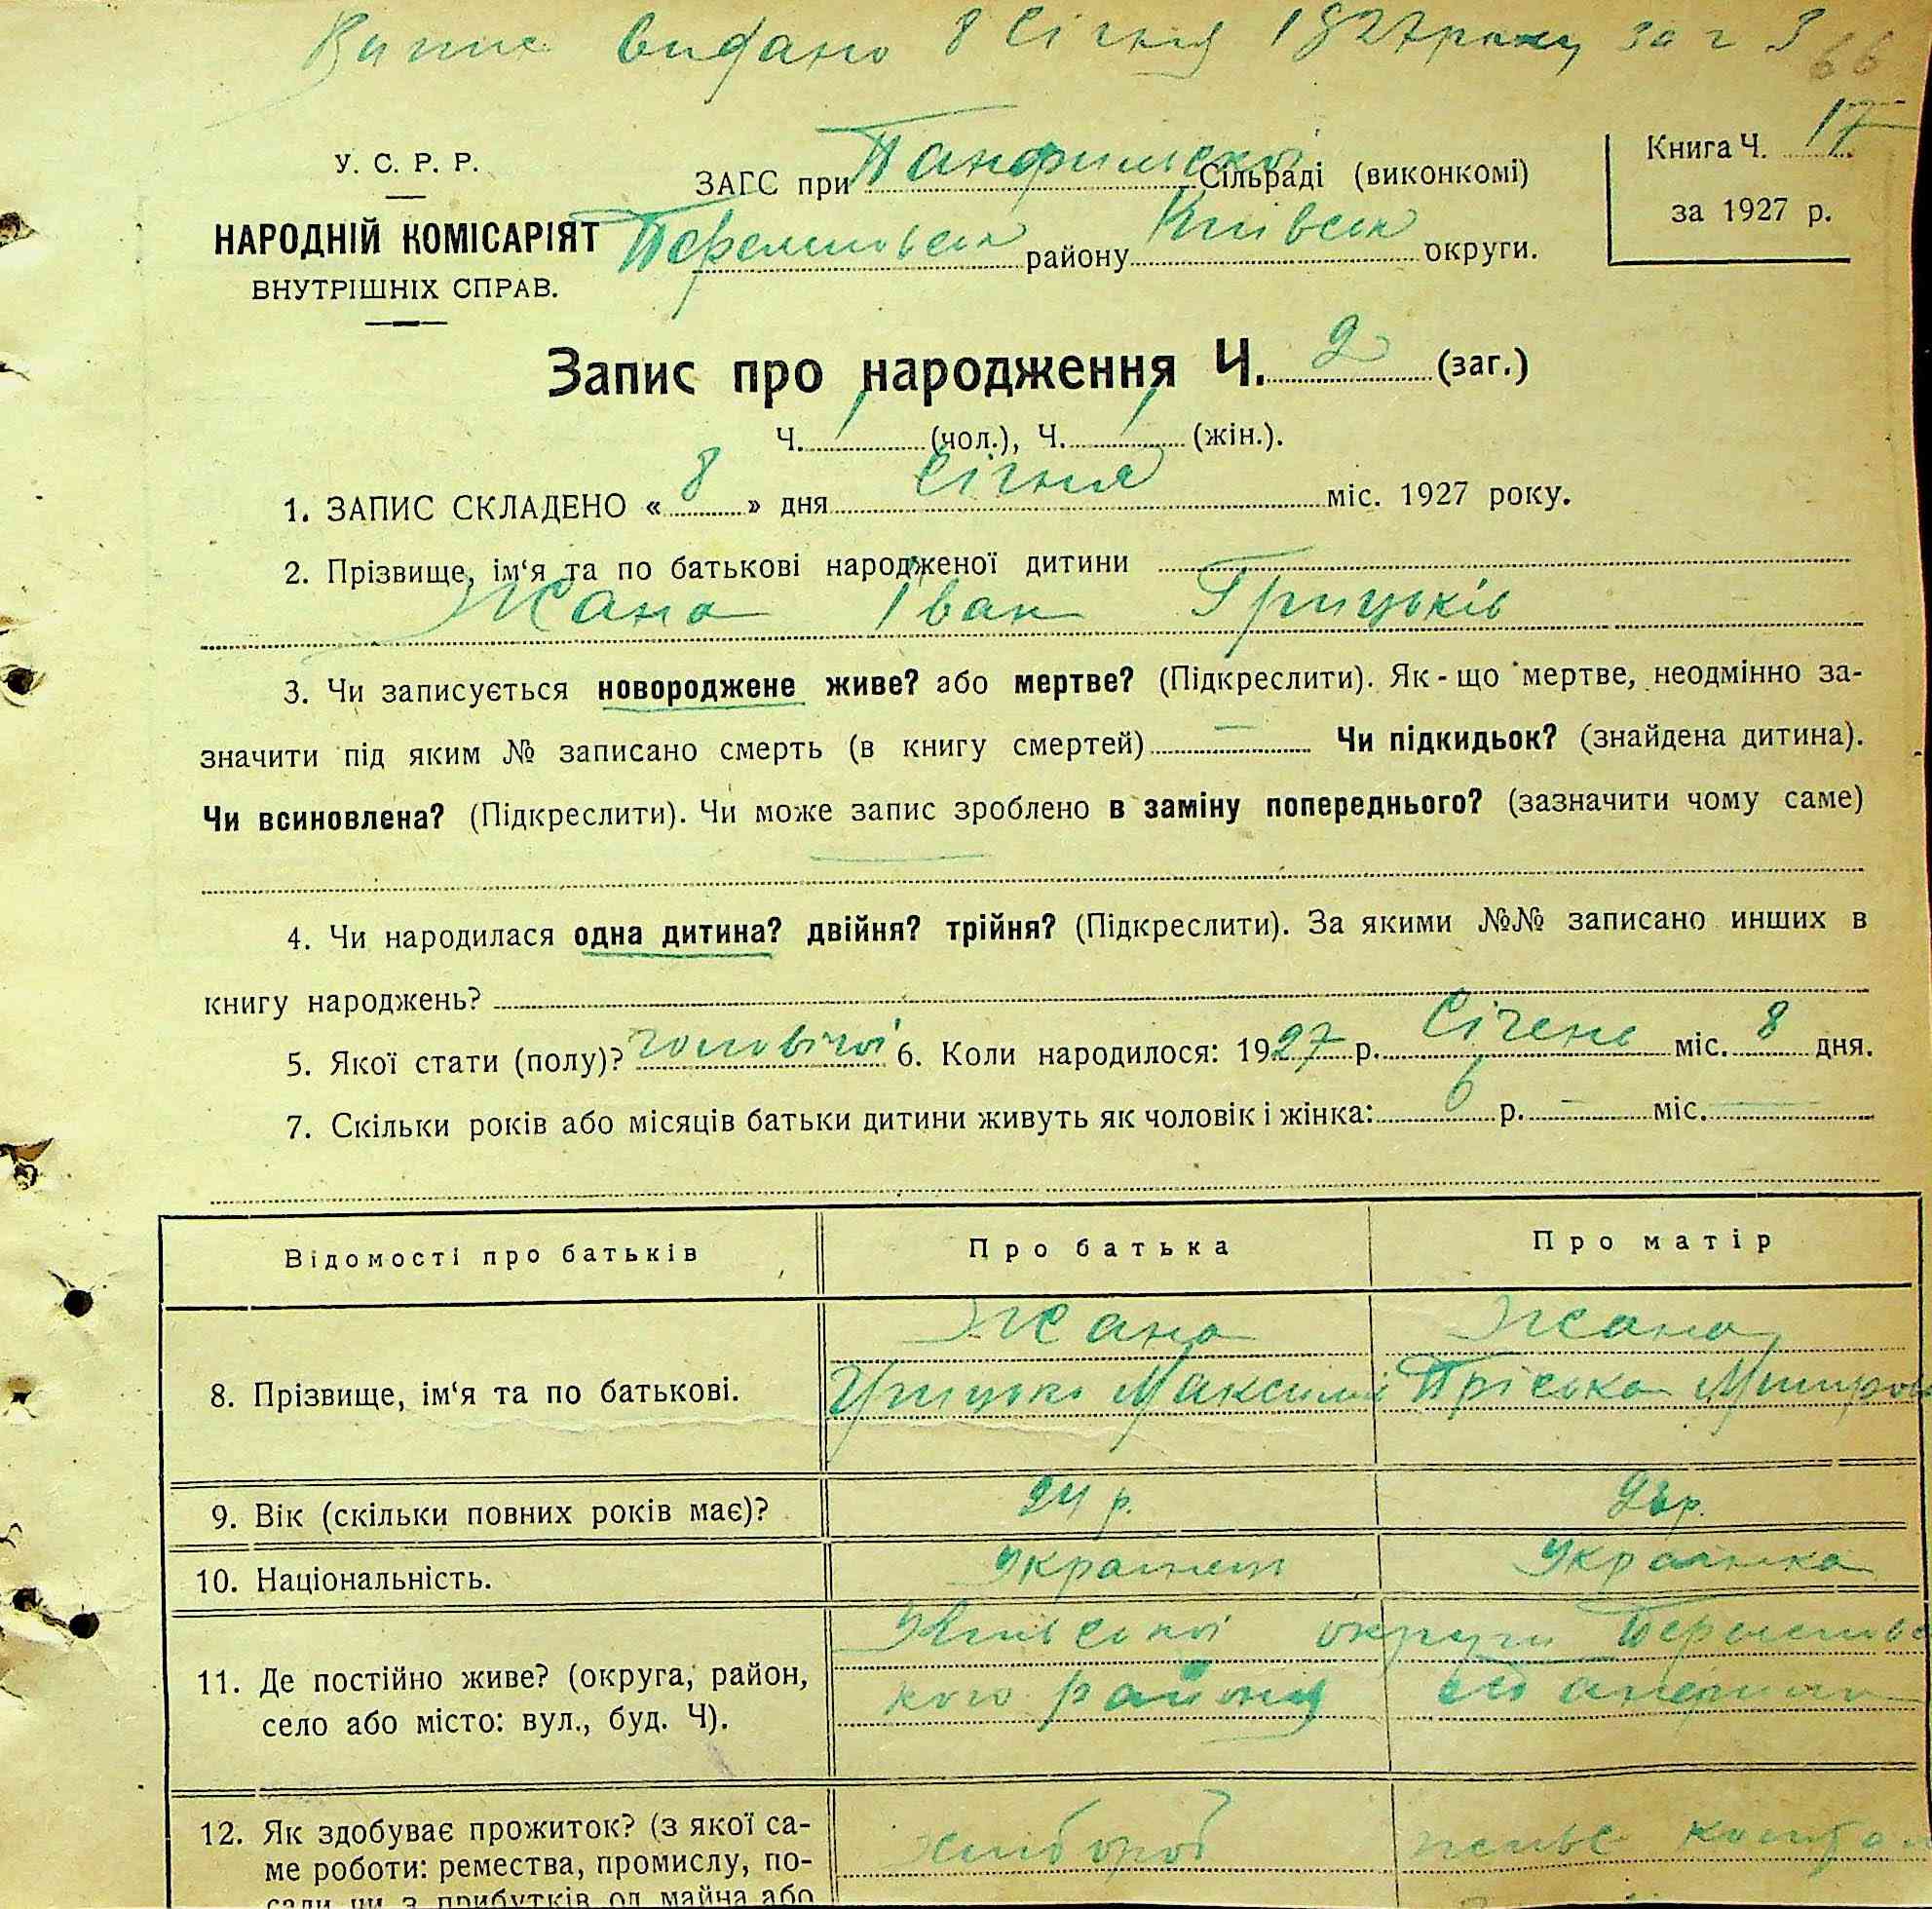 Випис видано 8 Січня 1927 року за ч 3
66
У. С. Р. Р.
НАРОДНІЙ КОМІСАРІЯТ
ВНУТРІШНІХ СПРАВ.
ЗАГС при Панфильскої Сільраді (виконкомі)
району Київськ округи.
Книга Ч. 17
за 1927 р.
Запис про народження Ч. 2 (заг.)
Ч. 1 (чол.), Ч. 1 (жін.).
1. ЗАПИС СКЛАДЕНО « 8 » дня Січня міс. 1927 року.
2. Прізвище, ім‘я та по батькові народженої дитини
Жана Іван Грицьків
3. Чи записується новороджене живе? або мертве? (Підкреслити). Як-що мертве, неодмінно за-
значити під яким № записано смерть (в книгу смертей) — Чи підкидьок? (знайдена дитина).
Чи всиновлена? (Підкреслити). Чи може запис зроблено в заміну попереднього? (зазначити чому саме)
—
4. Чи народилася одна дитина? двійня? трійня? (Підкреслити). За якими №№ записано инших в
книгу народжень?
5. Якої стати (полу)? чоловічої 6. Коли народилося: 1927 р. Січень міс. 8 дня.
7. Скільки років або місяців батьки дитини живуть як чоловік і жінка: 6 р. — міс. —
Відомості про батьків Про батька Про матір
Жана Жана
8. Прізвище, ім‘я та по батькові. Грицько Максимів Пріська
9. Вік (скільки повних років має)? 24 р. р.
10. Національність. Українец Українка
Київської округи
11. Де постійно живе? (округа, район, кого району
село або місто: вул., буд. Ч).
12. Як здобуває прожиток? (з якої са- хлібороб
ме роботи: ремества, промислу, по-
сади чи з прибутків од майна або